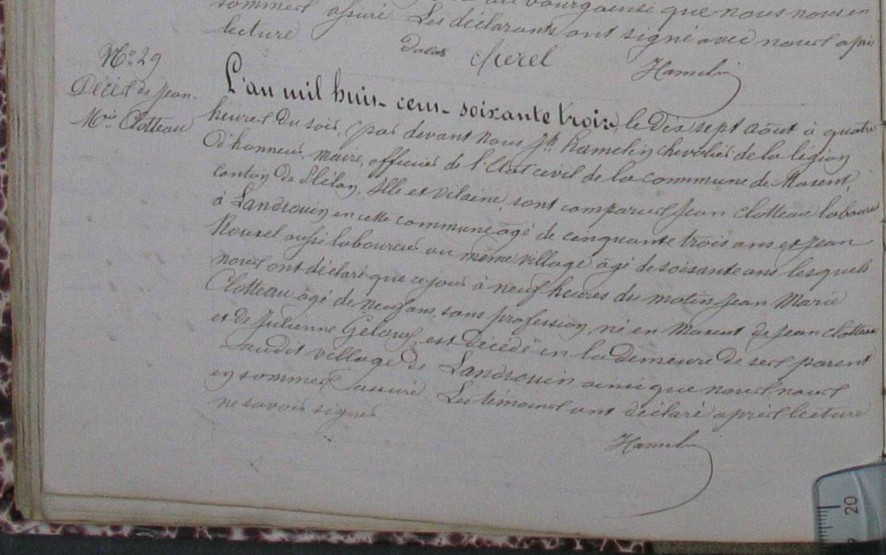 au bourg ainsi que nous nous en
sommes assuré Les déclarants ont signé avec nous après
lecture
Dalas Churel Hamelin
No 29
Décès de Jean
Mie Clotteau
L'an mil huit-cent-soixante trois le dix sept août à quatre
heures du soir, par devant nous Jh hamelin chevalier de la légion
D'honneur, maire, officier de l'Etat civil de la commune de Maxent,
canton de Plélan, Ille et vilaine, sont comparus Jean Clotteau laboureur
à Landrouin en cette commune âgé de cinquante trois ans et Jean
Rouxel aussi laboureur au même village âgé de soixante ans lesquels
nous ont déclaré que ce jour à neuf heures du matin Jean Marie
Clotteau âgé de neuf ans, sans profession, né en Maxent de Jean Clotteau
et de Julienne est décédé en la demeure de ses parent
audit village de Landrouin ainsi que nous nous
en sommes assuré Les témoins ont déclaré après lecture
ne savoir signer
Hamelin
20